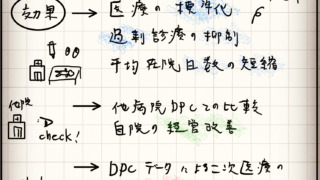 効果 → 医療の標準化
過剰診療の抑制
平均在院日数の短縮
他院 → 他病院DPCとの比較
check!
自院の経営改善
→ DPCデータによる二次医療の